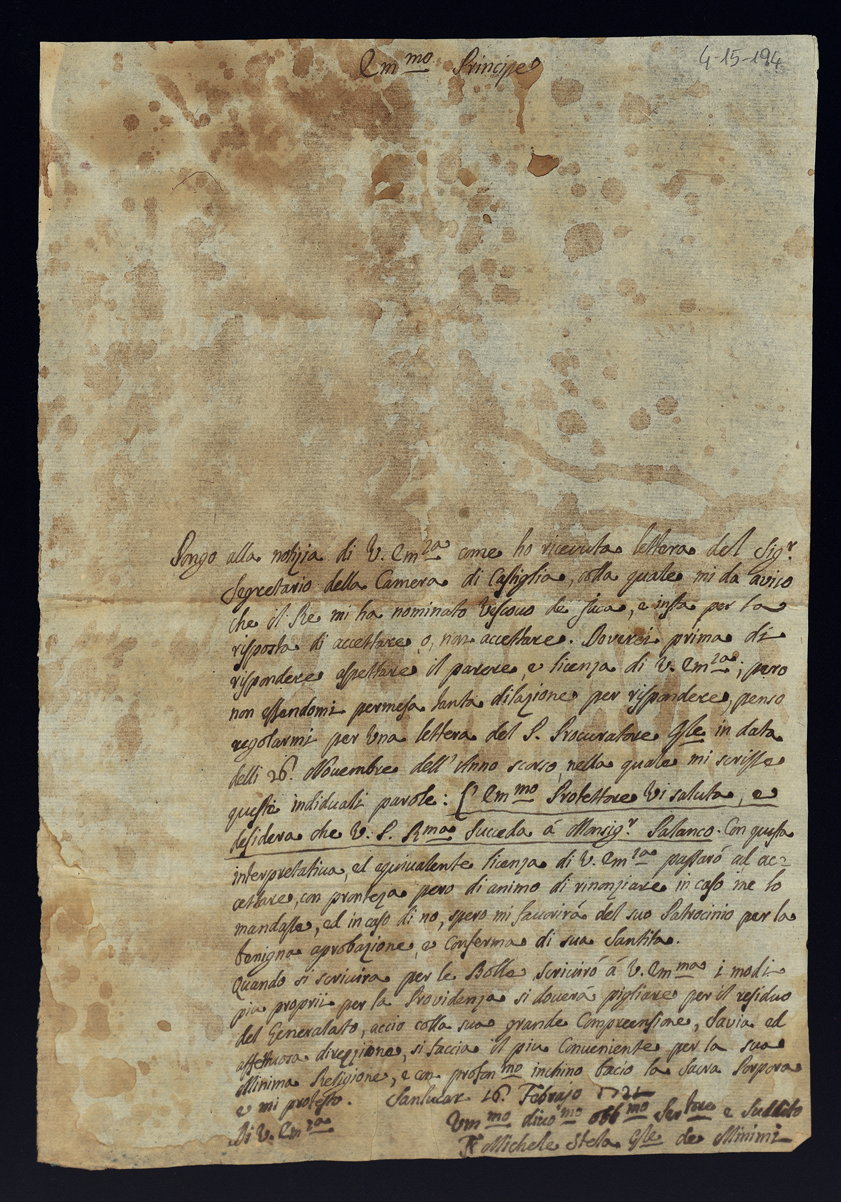 Em.mo Principe
4-15-194
Pongo alla notizia di V. Em.za come ho ricevuta lettera del Sig.r
Segretario della Camera di Castiglia, colla quale mi da aviso
che il Re mi ha nominato Vescovo de Jaca, e insta per la
risposta di accettare, o, non accettare. Doverei prima di
rispondere aspettare il parere, e licenza di V. Em.za; pero
non essendomi permesa tanta dilazione per rispondere, penso
regolarmi per una lettera del P. Procuratore Gle in data
delli 26. Novembre dell'Anno scorso, nella quale mi scrisse
queste individuali parole: L'Em.mo Protettore Vi saluta, e
desidera che V. P. R.ma succeda á Monsig.r Palanco. Con questa
interpretativa, ed equivalente licenza di V. Em.za passaró ad ac=
cettare, con prontezza pero di animo di rinonziare in caso me lo
mandasse, ed in caso di no, spero mi favorirá del suo Patrocinio per la
benigna aprobazione, e Conferma di sua Santita.
Quando si scrivira per le Bolle scriviró á V. Em.ma i modi
piu proprii per la Providenza si doverá pigliare per il residuo
del Generalato, accio colla sua grande Compreensione, Savia ed
affettuosa direzzione, si faccia il piu Conveniente per la sua
Minima Religione, e con profon.mo inchino bacio la Sacra Porpora
e mi protesto. Sanlucar 16. Febrajo 1721
Di V. Em.za
Um.mo divo.mo obb.mo Ser.tore e Suddito
Fr Michele Stela Gle de Minimi